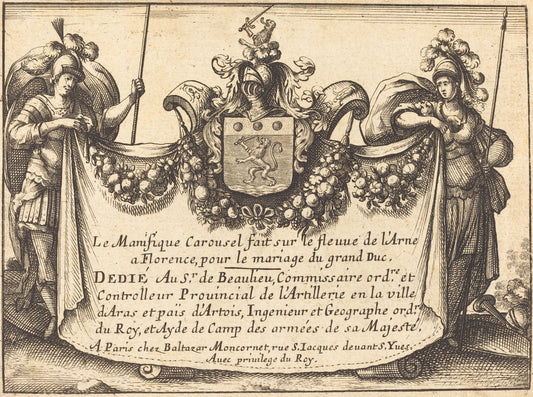 Le Manifique Carousel fait sur le fleuue de l'Arne
a Florence, pour le mariage du grand Duc.
DEDIÉ Au S.r de Beaulieu, Commissaire ord.re et
Controlleur Prouincial de l'Artillerie en la ville
d'Aras et païs d'Artois, Ingenieur et Geographe ord.re
du Roy, et Ayde de Camp des armées de sa Majesté.
A Paris chez Baltazar Moncornet, rue S. Iacques deuant S. Yues.
Auec priuilege du Roy.